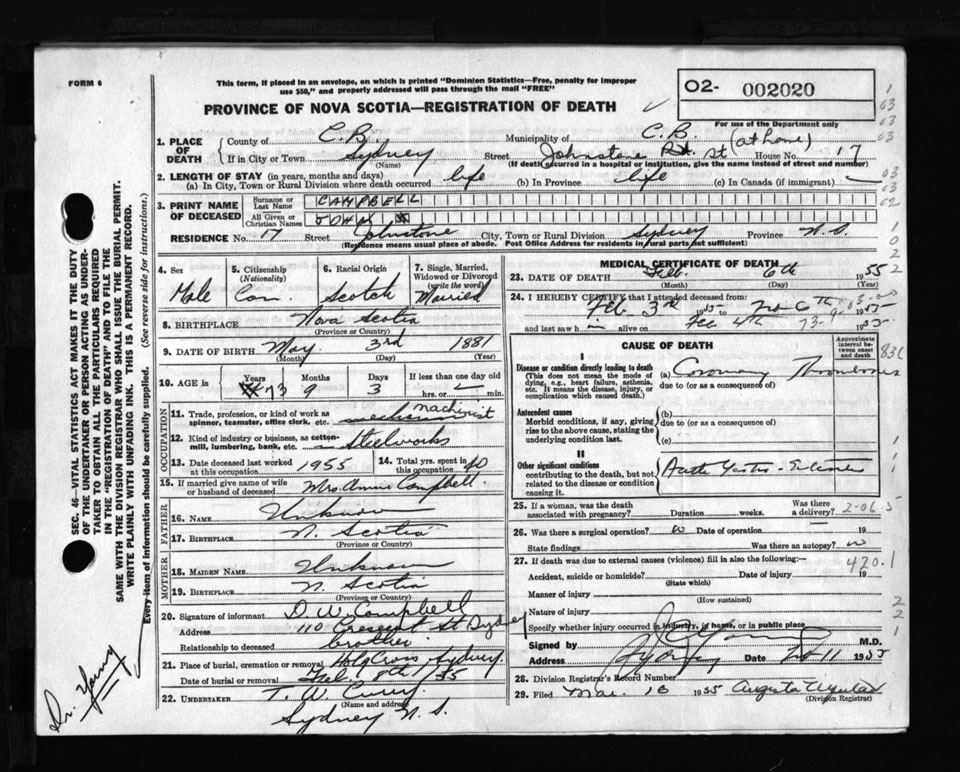 FORM 6
This form, if placed in an envelope, on which is printed "Dominion Statistics—Free, penalty for improper
use $50," and properly addressed will pass through the mail "FREE"
O2- 002020
For use of the Department only
PROVINCE OF NOVA SCOTIA—REGISTRATION OF DEATH
1. PLACE OF DEATH
County of C.B. Municipality of C.B.
If in City or Town Sydney (Name) Street Johnstone Rd. St (at home) House No. 17
(If death occurred in a hospital or institution, give the name instead of street and number)
2. LENGTH OF STAY (in years, months and days)
(a) In City, Town or Rural Division where death occurred life (b) In Province life (c) In Canada (if immigrant) —
3. PRINT NAME OF DECEASED
Surname or Last Name CAMPBELL
All Given or Christian Names JOHN
RESIDENCE No. 17 Street Johnstone City, Town or Rural Division Sydney Province N.S.
(Residence means usual place of abode. Post Office Address for residents in rural parts not sufficient)
4. Sex Male
5. Citizenship (Nationality) Can.
6. Racial Origin Scotch
7. Single, Married, Widowed or Divorced (write the word) Married
8. BIRTHPLACE Nova Scotia
(Province or Country)
9. DATE OF BIRTH May 3rd 1881
(Month) (Day) (Year)
10. AGE in Years 73 Months 9 Days 3 If less than one day old hrs. or min.
OCCUPATION
11. Trade, profession, or kind of work as spinner, teamster, office clerk, etc. machinist
12. Kind of industry or business, as cotton-mill, lumbering, bank, etc. Steelworks
13. Date deceased last worked at this occupation 1955
14. Total yrs. spent in this occupation 40
15. If married give name of wife or husband of deceased Mrs. Annie Campbell.
FATHER
16. NAME Unknown
17. BIRTHPLACE N. Scotia
(Province or Country)
MOTHER
18. MAIDEN NAME Unknown
19. BIRTHPLACE N. Scotia
(Province or Country)
20. Signature of informant D. W. Campbell
Address 110 Crescent St Sydney
Relationship to deceased brother.
21. Place of burial, cremation or removal Holy Cross, Sydney.
Date of burial or removal Feb. 8th /55
22. UNDERTAKER T. W. Curry
(Name and address)
Sydney N. S.
MEDICAL CERTIFICATE OF DEATH
23. DATE OF DEATH Feb. 6th 1955
(Month) (Day)
24. I HEREBY CERTIFY that I attended deceased from:
Feb 3rd 1955 to Feb 6th 1955
and last saw him alive on Feb 4th 1955
73-9-03.00
CAUSE OF DEATH
Approximate interval between onset and death
I
Disease or condition directly leading to death
(This does not mean the mode of dying, e.g., heart failure, asthenia, etc. It means the disease, injury, or complication which caused death.)
(a) Coronary Thrombosis
due to (or as a consequence of)
Antecedent causes
Morbid conditions, if any, giving rise to the above cause, stating the underlying condition last.
(b)
due to (or as a consequence of)
(c)
II
Other significant conditions
contributing to the death, but not related to the disease or condition causing it.
25. If a woman, was the death associated with pregnancy? Duration weeks. Was there a delivery?
2-06.5
26. Was there a surgical operation? no Date of operation 19
State findings Was there an autopsy? no
27. If death was due to external causes (violence) fill in also the following:—
420.1
Accident, suicide or homicide? Date of injury 19
(State which)
Manner of injury
(How sustained)
Nature of injury
Specify whether injury occurred in industry, in home, or in public place
Signed by Young M.D.
Address Sydney Date Feb 11 1955
28. Division Registrar's Record Number
29. Filed Mar. 16 1955 Augusta
(Division Registrar)
SEC. 46 - VITAL STATISTICS ACT MAKES IT THE DUTY
OF THE UNDERTAKER OR PERSON ACTING AS UNDER-
TAKER TO OBTAIN ALL THE PARTICULARS REQUIRED
IN THE "REGISTRATION OF DEATH" AND TO FILE THE
SAME WITH THE DIVISION REGISTRAR WHO SHALL ISSUE THE BURIAL PERMIT.
WRITE PLAINLY WITH UNFADING INK. THIS IS A PERMANENT RECORD.
Every item of information should be carefully supplied. (See reverse side for instructions.)
Dr. Young